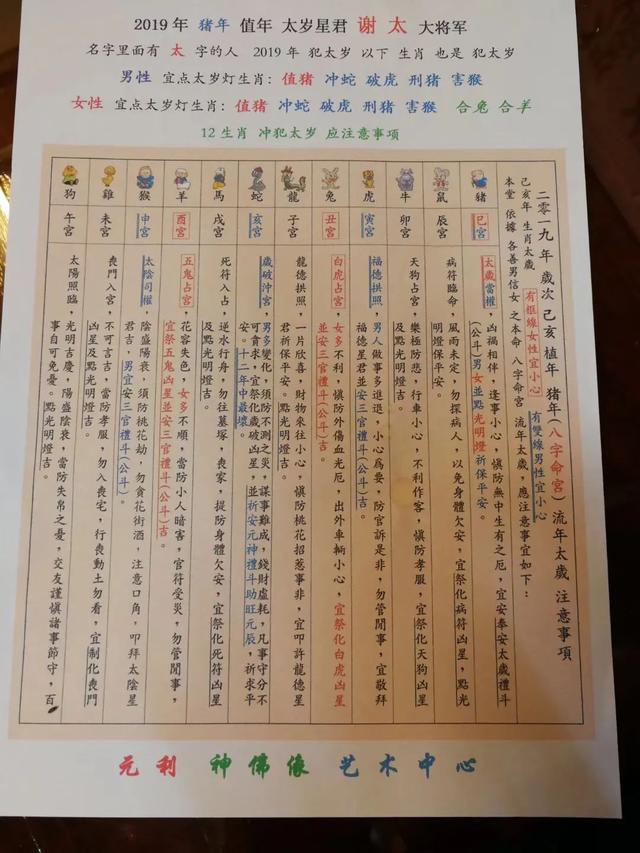 2019年 猪年 值年 太岁星君 谢太 大将军
名字里面有 太 字的人 2019年 犯太岁 以下 生肖 也是 犯太岁
男性 宜点太岁灯生肖: 值猪 冲蛇 破虎 刑猪 害猴
女性 宜点太岁灯生肖: 值猪 冲蛇 破虎 刑猪 害猴 合兔 合羊
12 生肖 冲犯太岁 应注意事项
二零一九年 歲次 己亥 植年 豬年(八字命宮)流年太歲 注意事項
有框線女性宜小心 有雙線男性宜小心
己亥年 生肖太歲
本堂 依據 各善男信女 之本命 八字命宮 流年太歲,應注意事宜如下:
豬
巳宮
太歲當權,凶禍相伴,逢事小心,慎防無中生有之厄,宜安奉安太歲禮斗
(公斗)男女並點光明燈祈保平安。
鼠
辰宮
病符臨命,風雨未定,勿探病人,以免身體欠安,宜祭化病符凶星,點光
明燈保平安。
牛
卯宮
天狗占宮,樂極防悲,行車小心,不利作客,慎防孝服,宜祭化天狗凶星
及點光明燈吉。
虎
寅宮
福德拱照,男人做事多進退,小心為要,防官訴是非,勿管閒事,宜敬拜
福德星君並安三官禮斗(公斗)吉。
兔
丑宮
白虎占宮,女多不利,慎防外傷血光厄,出外車輛小心,宜祭化白虎凶星
並安三官禮斗(公斗)吉。
龍
子宮
龍德拱照,一片欣喜,財物來往小心,慎防桃花招惹事非,宜叩許龍德星
君祈保平安。
蛇
亥宮
歲破沖宮,男多變化,須防不測之災,謀事難成,錢財虛耗,凡事守分不
可貪求,宜祭化歲破凶星,並祈安元神禮斗助旺元辰,祈求平
安。十二年中最壞。
馬
戌宮
死符入占,逆水行舟,勿往墓塚,喪家,提防身體欠安,宜祭化死符凶星
及點光明燈吉。
羊
酉宮
五鬼占宮,花容失色,女多不順,當防小人暗害,官符受災,勿管閒事,
宜祭五鬼凶星並安三官禮斗(公斗)吉。
猴
申宮
太陰司權,陰盛陽衰,須防桃花劫,勿貪花街酒,注意口角,叩拜太陰星
君吉,男宜安三官禮斗(公斗)。
雞
未宮
喪門入宮,不可言吉,當防孝服,勿入喪宅,行喪動土勿看,宜制化喪門
凶星及點光明燈吉。
狗
午宮
太陽照臨,光明吉慶,陽盛陰衰,當防失帛之憂,交友謹慎諸事節守,百
事自可免憂。點光明燈吉。
元利 神佛像 艺术中心